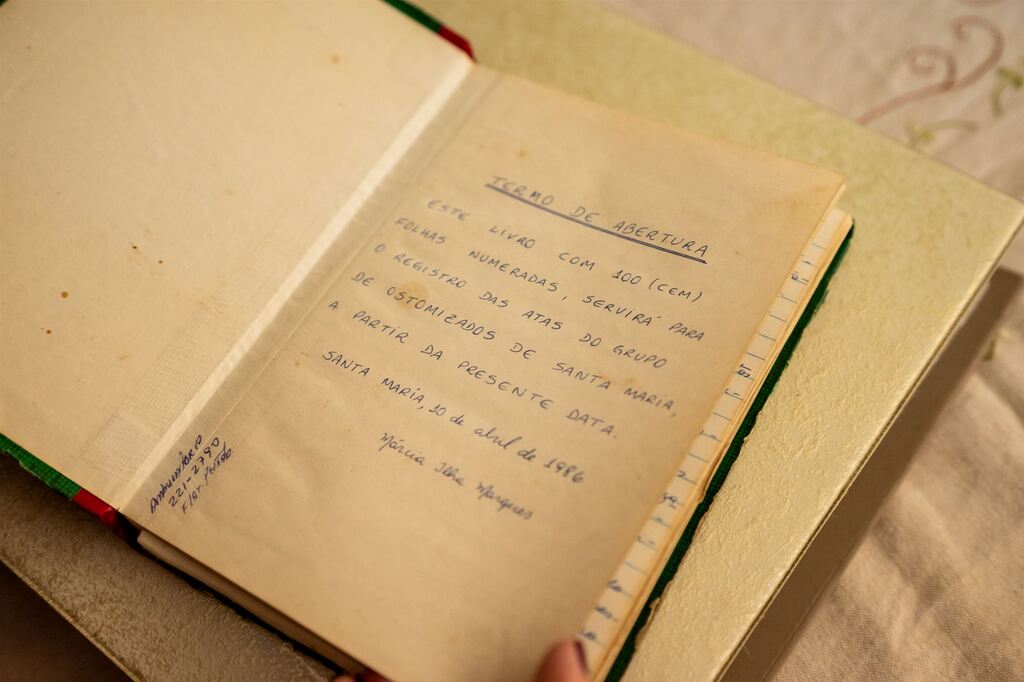 TERMO DE ABERTURA
ESTE LIVRO COM 100 (CEM)
FOLHAS NUMERADAS, SERVIRÁ PARA
O REGISTRO DAS ATAS DO GRUPO
DE OSTOMIZADOS DE SANTA MARIA,
A PARTIR DA PRESENTE DATA.
SANTA MARIA, 10 de abril de 1986
Márcia Ilha Marques
221-2790